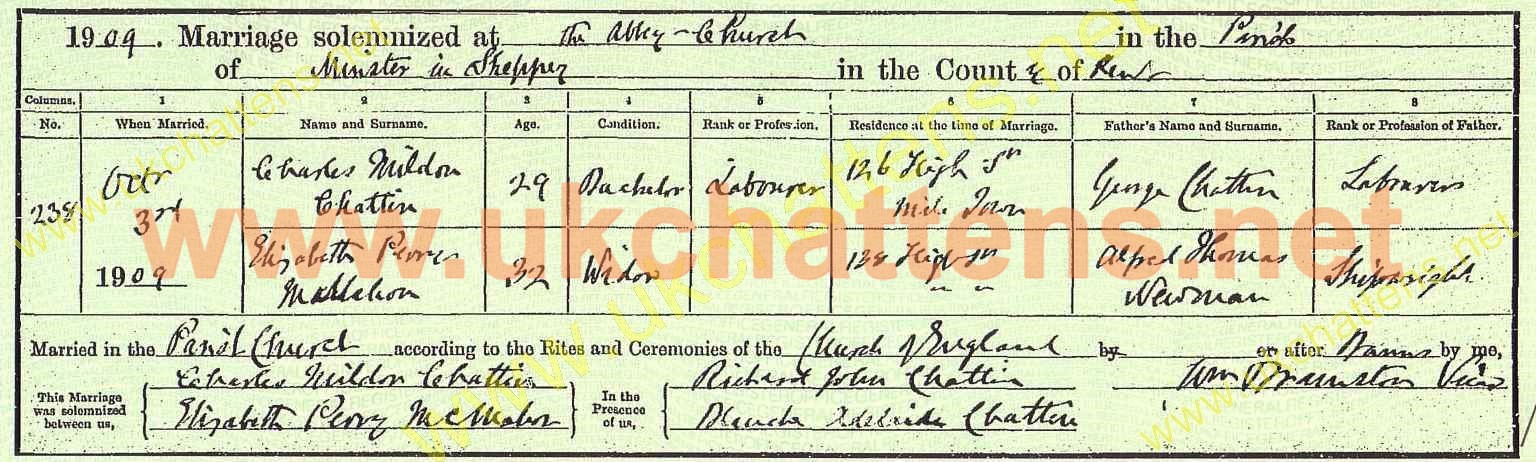 1909. Marriage solemnized at the Abbey-Church in the Parish
of Minster in Sheppey in the County of Kent
Columns. 1 2 3 4 5 6 7 8
No. When Married. Name and Surname. Age. Condition. Rank or Profession. Residence at the time of Marriage. Father's Name and Surname. Rank or Profession of Father.
238 Octr Charles Mildon 29 Bachelor Labourer 126 High St George Chatten Labourer
3rd Chatten Mile Town
1909 Elizabeth Percy 32 Widow 138 High St Alfred Thomas Shipwright
McMahon " " Newman
Married in the Parish Church according to the Rites and Ceremonies of the Church of England by or after Banns by me,
This Marriage was solemnized between us, Charles Mildon Chatten In the Presence of us, Richard John Chatten Wm Bramston Vicar
Elizabeth Percy McMahon Blanche Adelaide Chatten
www.ukchattens.net
www.ukchattens.net
www.ukchattens.net
www.ukchattens.net